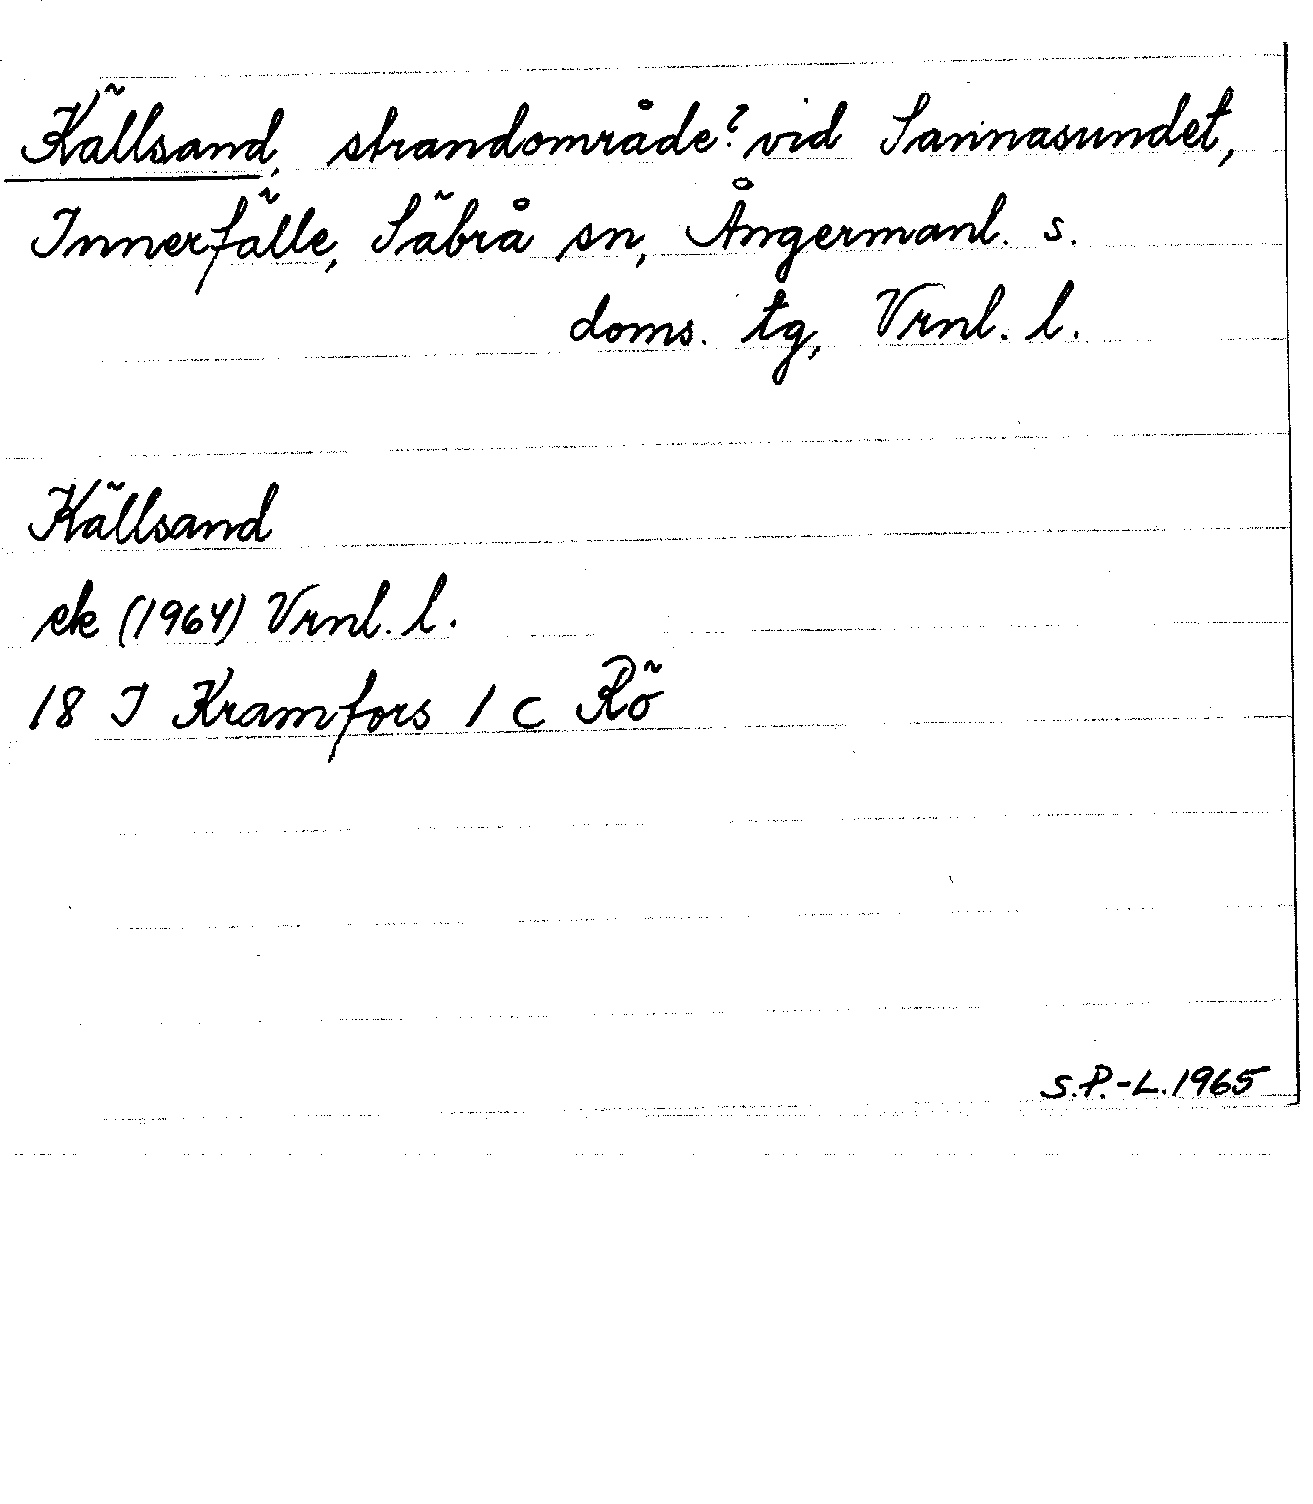 Källsand, strandområde? vid Sannasundet,
Innerfälle, Säbrå sn, Ångermanl. s.
doms. tg, Vrnl. l.
Källsand
ek (1964) Vrnl. l.
18 I Kramfors 1 c Rö
S.P.-L.1965